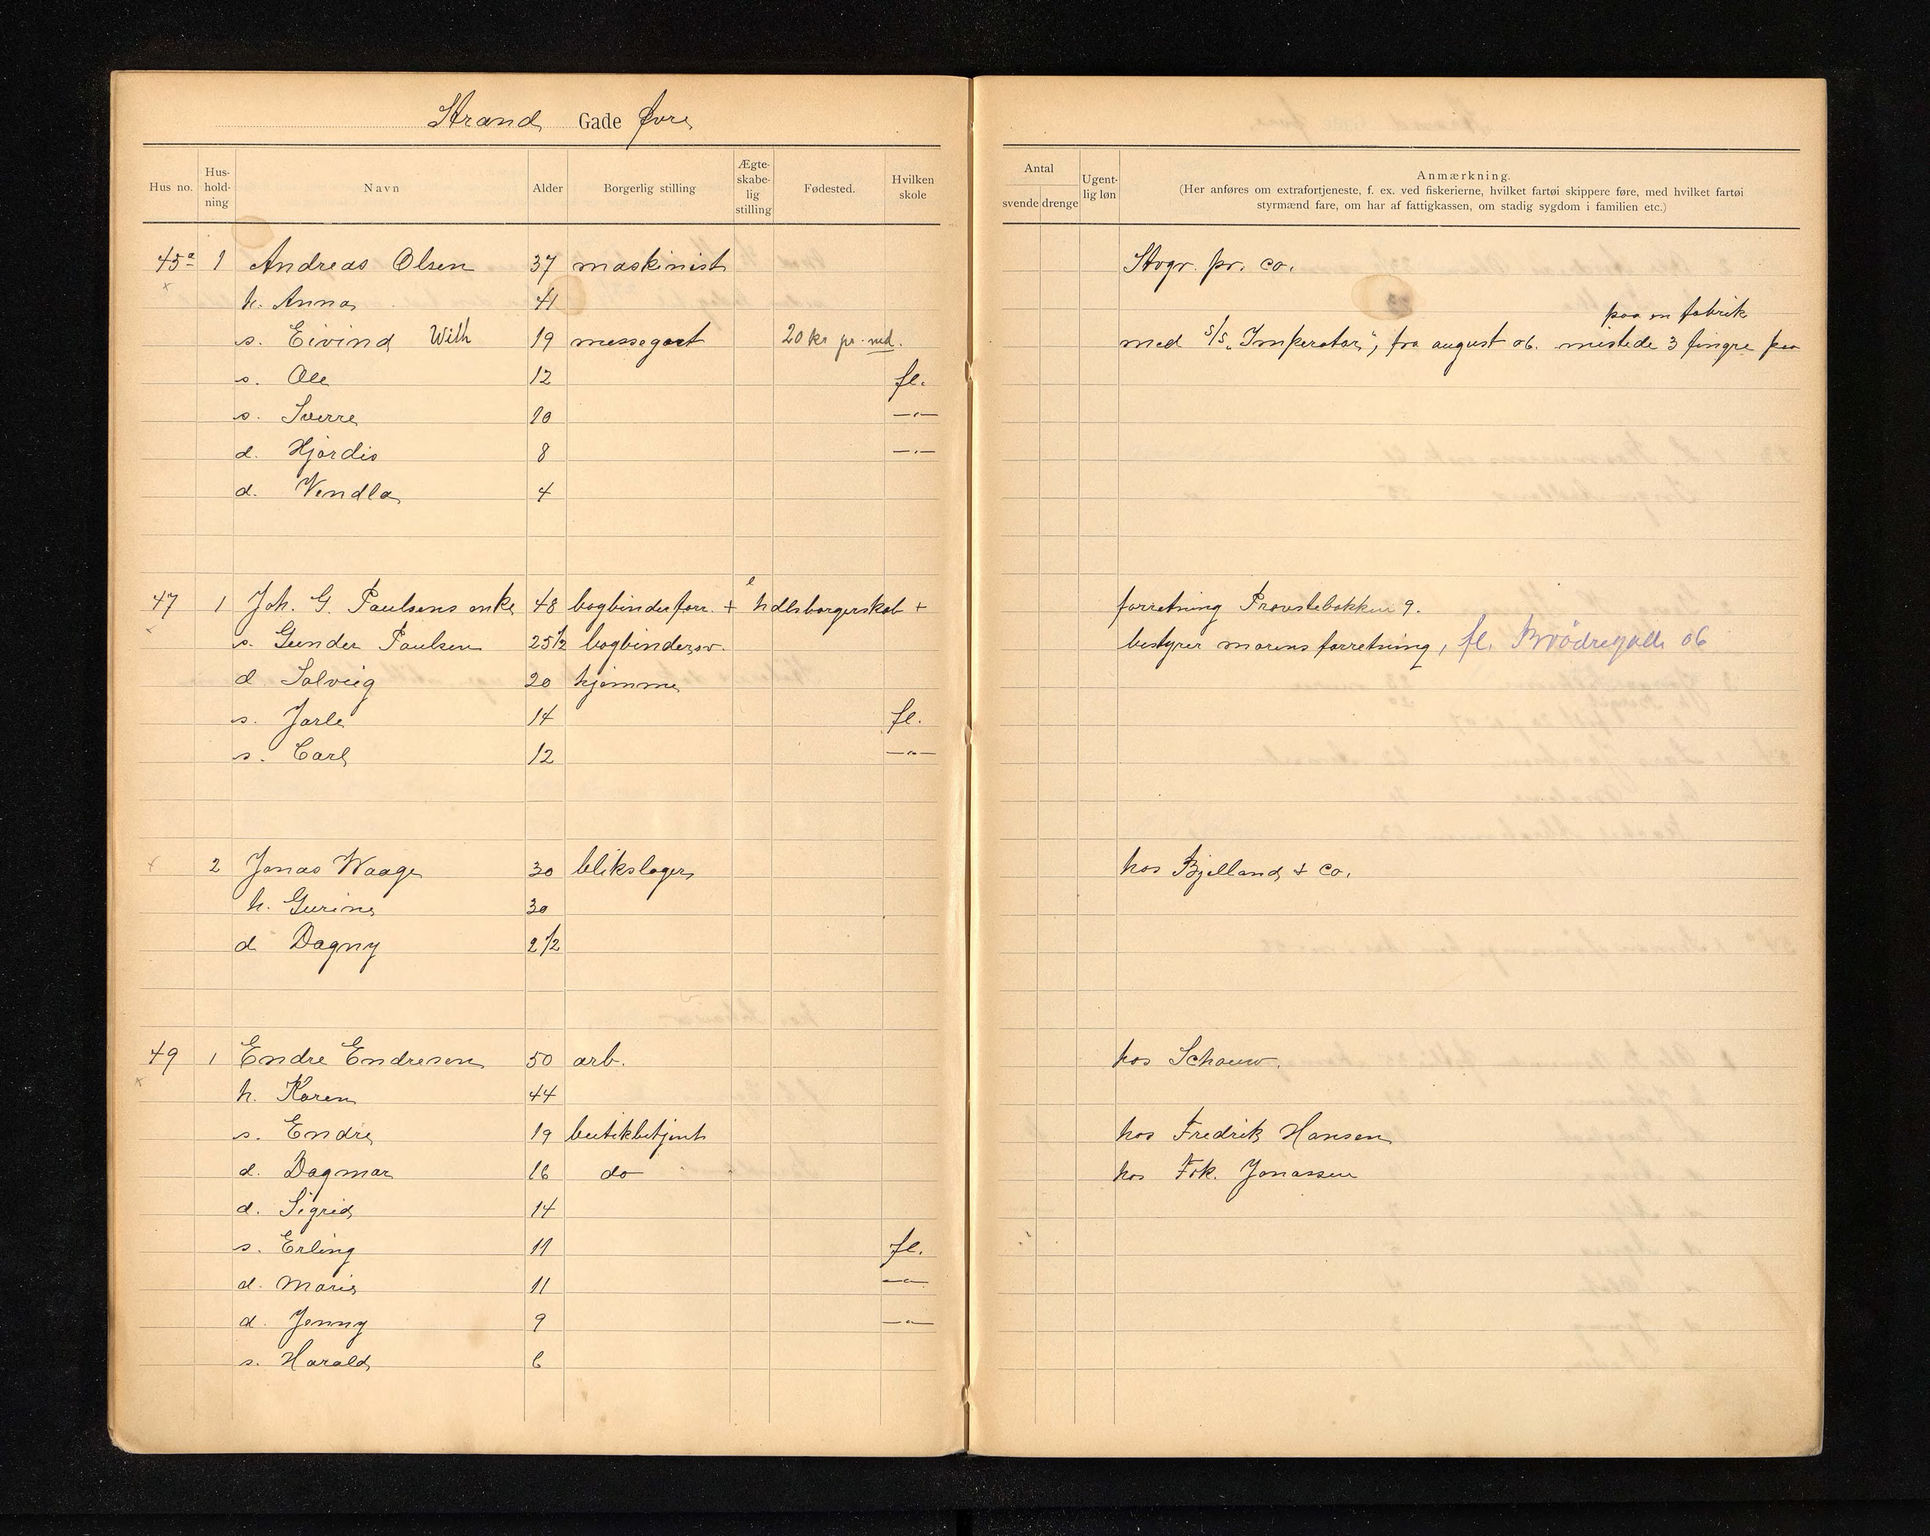 Strand Gade Øvre
Hus no. Hus-hold-ning Navn Alder Borgerlig stilling Ægte-skabe-lig stilling Fødested. Hvilken skole
Antal svende drenge Ugent-lig løn Anmærkning.
(Her anføres om extrafortjeneste, f. ex. ved fiskerierne, hvilket fartøi skippere føre, med hvilket fartøi
styrmænd fare, om har af fattigkassen, om stadig sygdom i familien etc.)
45a 1 Andreas Olsen 37 maskinist Stvgr. pr. co.
h. Anna 41
paa en fabrik
s. Eivind Wilh 19 messegut 20 kr pr. md. med s/s „Imperator", fra august 06. mistede 3 fingre paa
s. Ole 12 fl.
s. Sverre 10 —"—
d. Hjørdis 8 —"—
d. Vendla 4
47 1 Joh. G. Paulsens enke 48 bogbinderforr. + hdlsborgerskab + forretning Provstebakken 9.
s. Gunder Paulsen 25 1/2 bogbindersv. bestyrer morens forretning, fl. Brödregade 06
d Solveig 20 hjemme
s. Jarle 14 fl.
s. Carl 12 —"—
2 Jonas Waage 30 blikslager hos Bjelland & co.
h. Gurine 30
d Dagny 2 1/2
49 1 Endre Endresen 50 arb. hos Schouw.
h. Karen 44
s. Endre 19 butikbetjent hos Fredrik Hansen
d. Dagmar 16 do hos Frk. Jonassen
d. Sigrid 14
s. Erling 11 fl.
d. Marie 11 —"—
d. Jenny 9 —"—
s. Harald 6